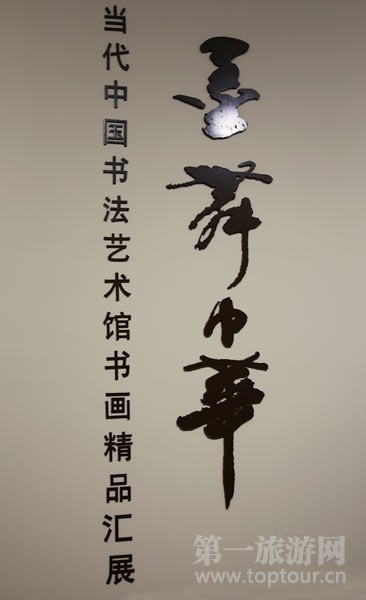 墨舞中華
当代中国书法艺术馆书画精品汇展
第一旅游网
www.toptour.cn